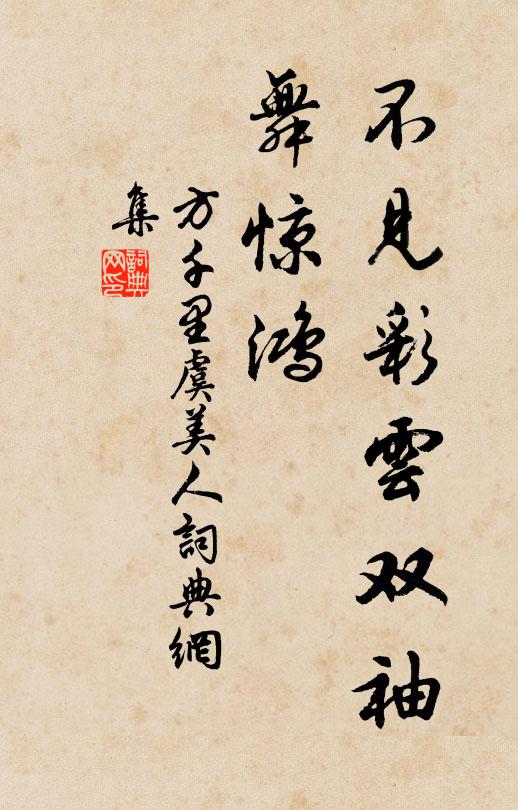 不见彩雲双袖
舞惊鸿
方千里虞美人詞典網
集
詞典
网印